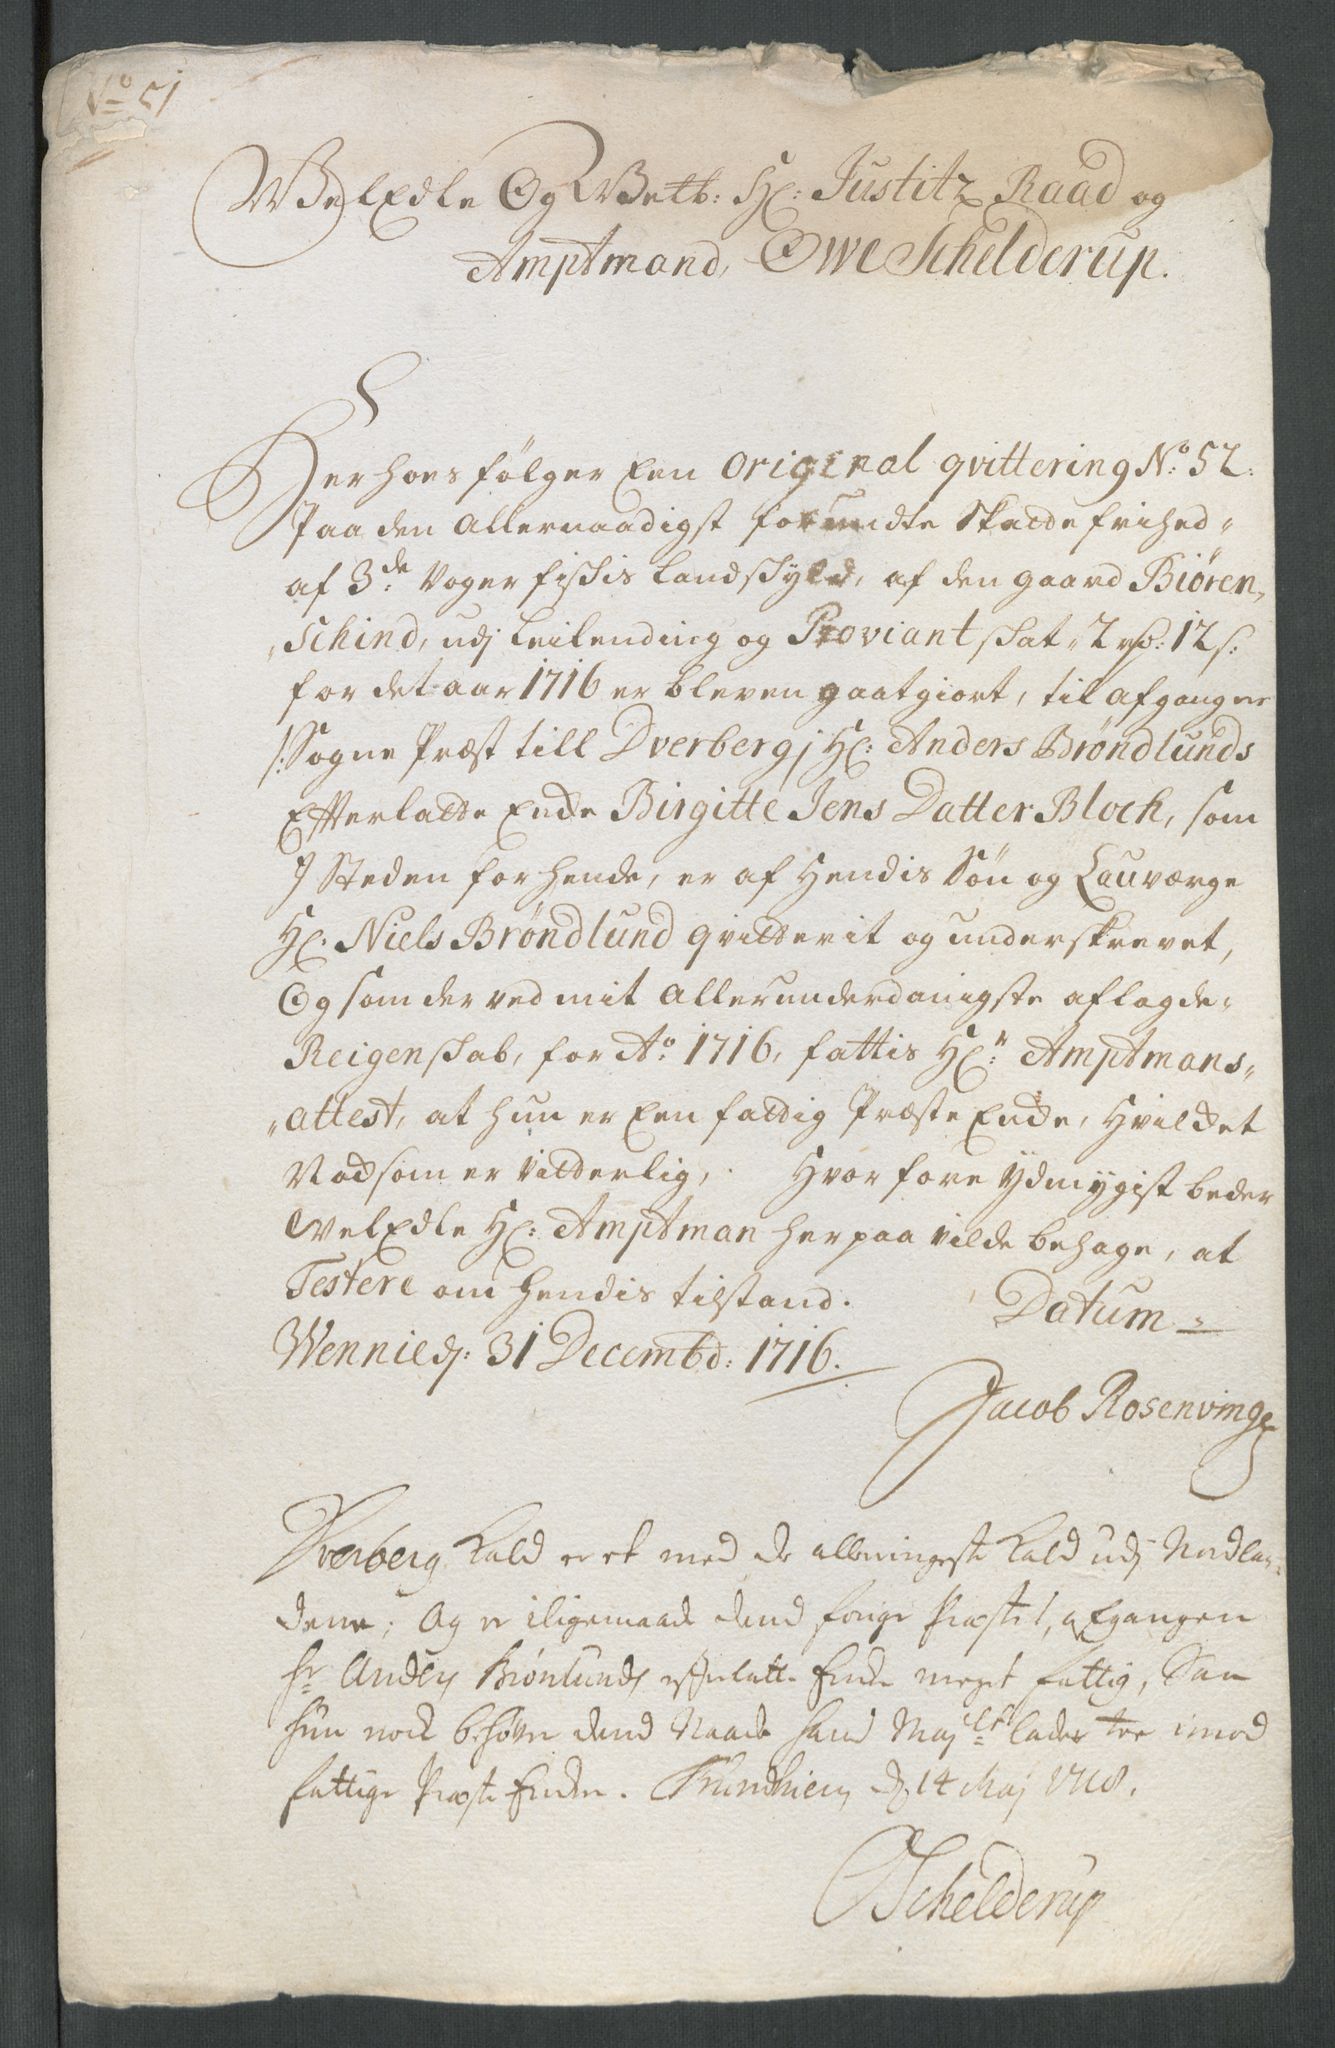 No 51
WelEdle Og Welb: Hr: Justitz Raad og
Amptmand, Owe Schelderup.
Herhoes følger Een Original qvittering No: 52:
Paa den Allernaadigst forundte Skatte frihed
af 3de Voger fiskis Landskyld, af den gaard Biøren,,
,,schind, udj Leilending og Proviant skat,, 2 rd: 12 s:
for det aar 1716 er bleven gaatgiort, til afgangne
/:Sogne Præst till Dverberg:/ Hr: Anders Brøndlunds
Efterlatte Encke Birgitte Jens Datter Bloch, som
J Steden for hende, er af Hendis Søn og Lauværge
Hr: Niels Brøndlund qvitterit og underskrevet,
Og som der ved mit Allerunderdanigste aflagde
Reigenskab, for Ao 1716, fattis Hr: Amptmans,,
,,attest, at hun er Een fattig Præste Encke, Hvilket
Nocksom er vitterlig, . Hvor fore Ydmygist beder
WelEdle Hr: Amptman her paa vilde behage, at
Testere om hendis tilstand. Datum
Wennie d: 31 Decembr: 1716.
Jacob Rosenvinge
Dverberg Kald er et med de allerringeste Kald udj Nordlan-
dene; Og er iligemaade dend forige Præstis, afgangen
hr Anders Brønlunds efterlatte Encke meget fattig, Saa
hun nock behøver dend Naade hans Majts lader tee imod
fattige Præste Encker. Trundhiem d. 14 Maj 1718.
OSchelderup